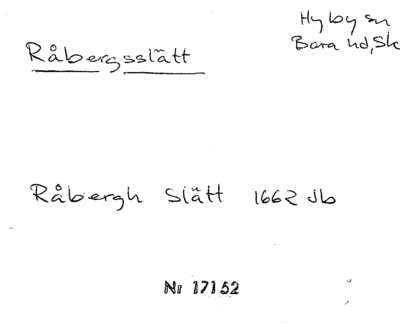 Hyby sn
Råbergsslätt
Bara hd, Sk
Råbergh Slätt 1662 Jb
Nr 17152